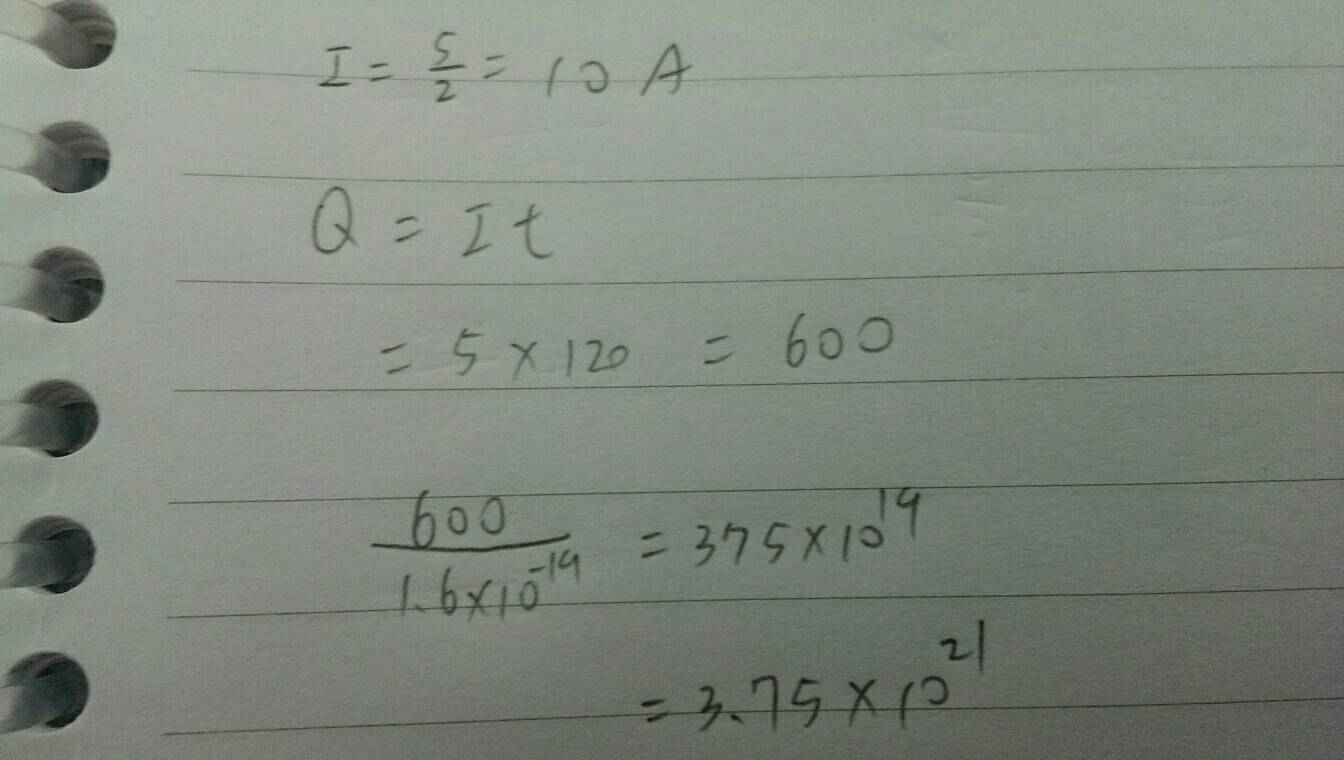 I = 5/2 = 10 A
Q = It
= 5 × 120 = 600
600/1.6×10^-19 = 375×10^19
= 3.75 × 10^21